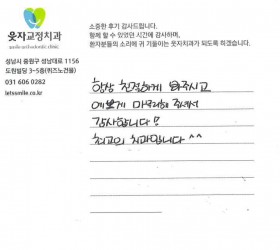 웃자교정치과
smile orthodontic clinic
성남시 중원구 성남대로 1156
도현빌딩 3~5층(퀴즈노건물)
031 606 0282
letssmile.co.kr
소중한 후기 감사드립니다.
함께 할 수 있었던 시간에 감사하며,
환자분들의 소리에 귀 기울이는 웃자치과가 되도록 하겠습니다.
항상 친절하게 해주시고
예쁘게 마무리해 주셔서
감사합니다!!
최고의 치과입니다^^